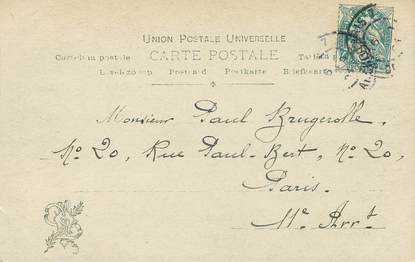 UNION POSTALE UNIVERSELLE
CARTE POSTALE
Cartolina postale
Levelező-lap Postcard Postkarte Briefkaart
Monsieur Paul Brugerolle,
No. 20, Rue Paul-Bert, No. 20,
Paris.
11e Arrt